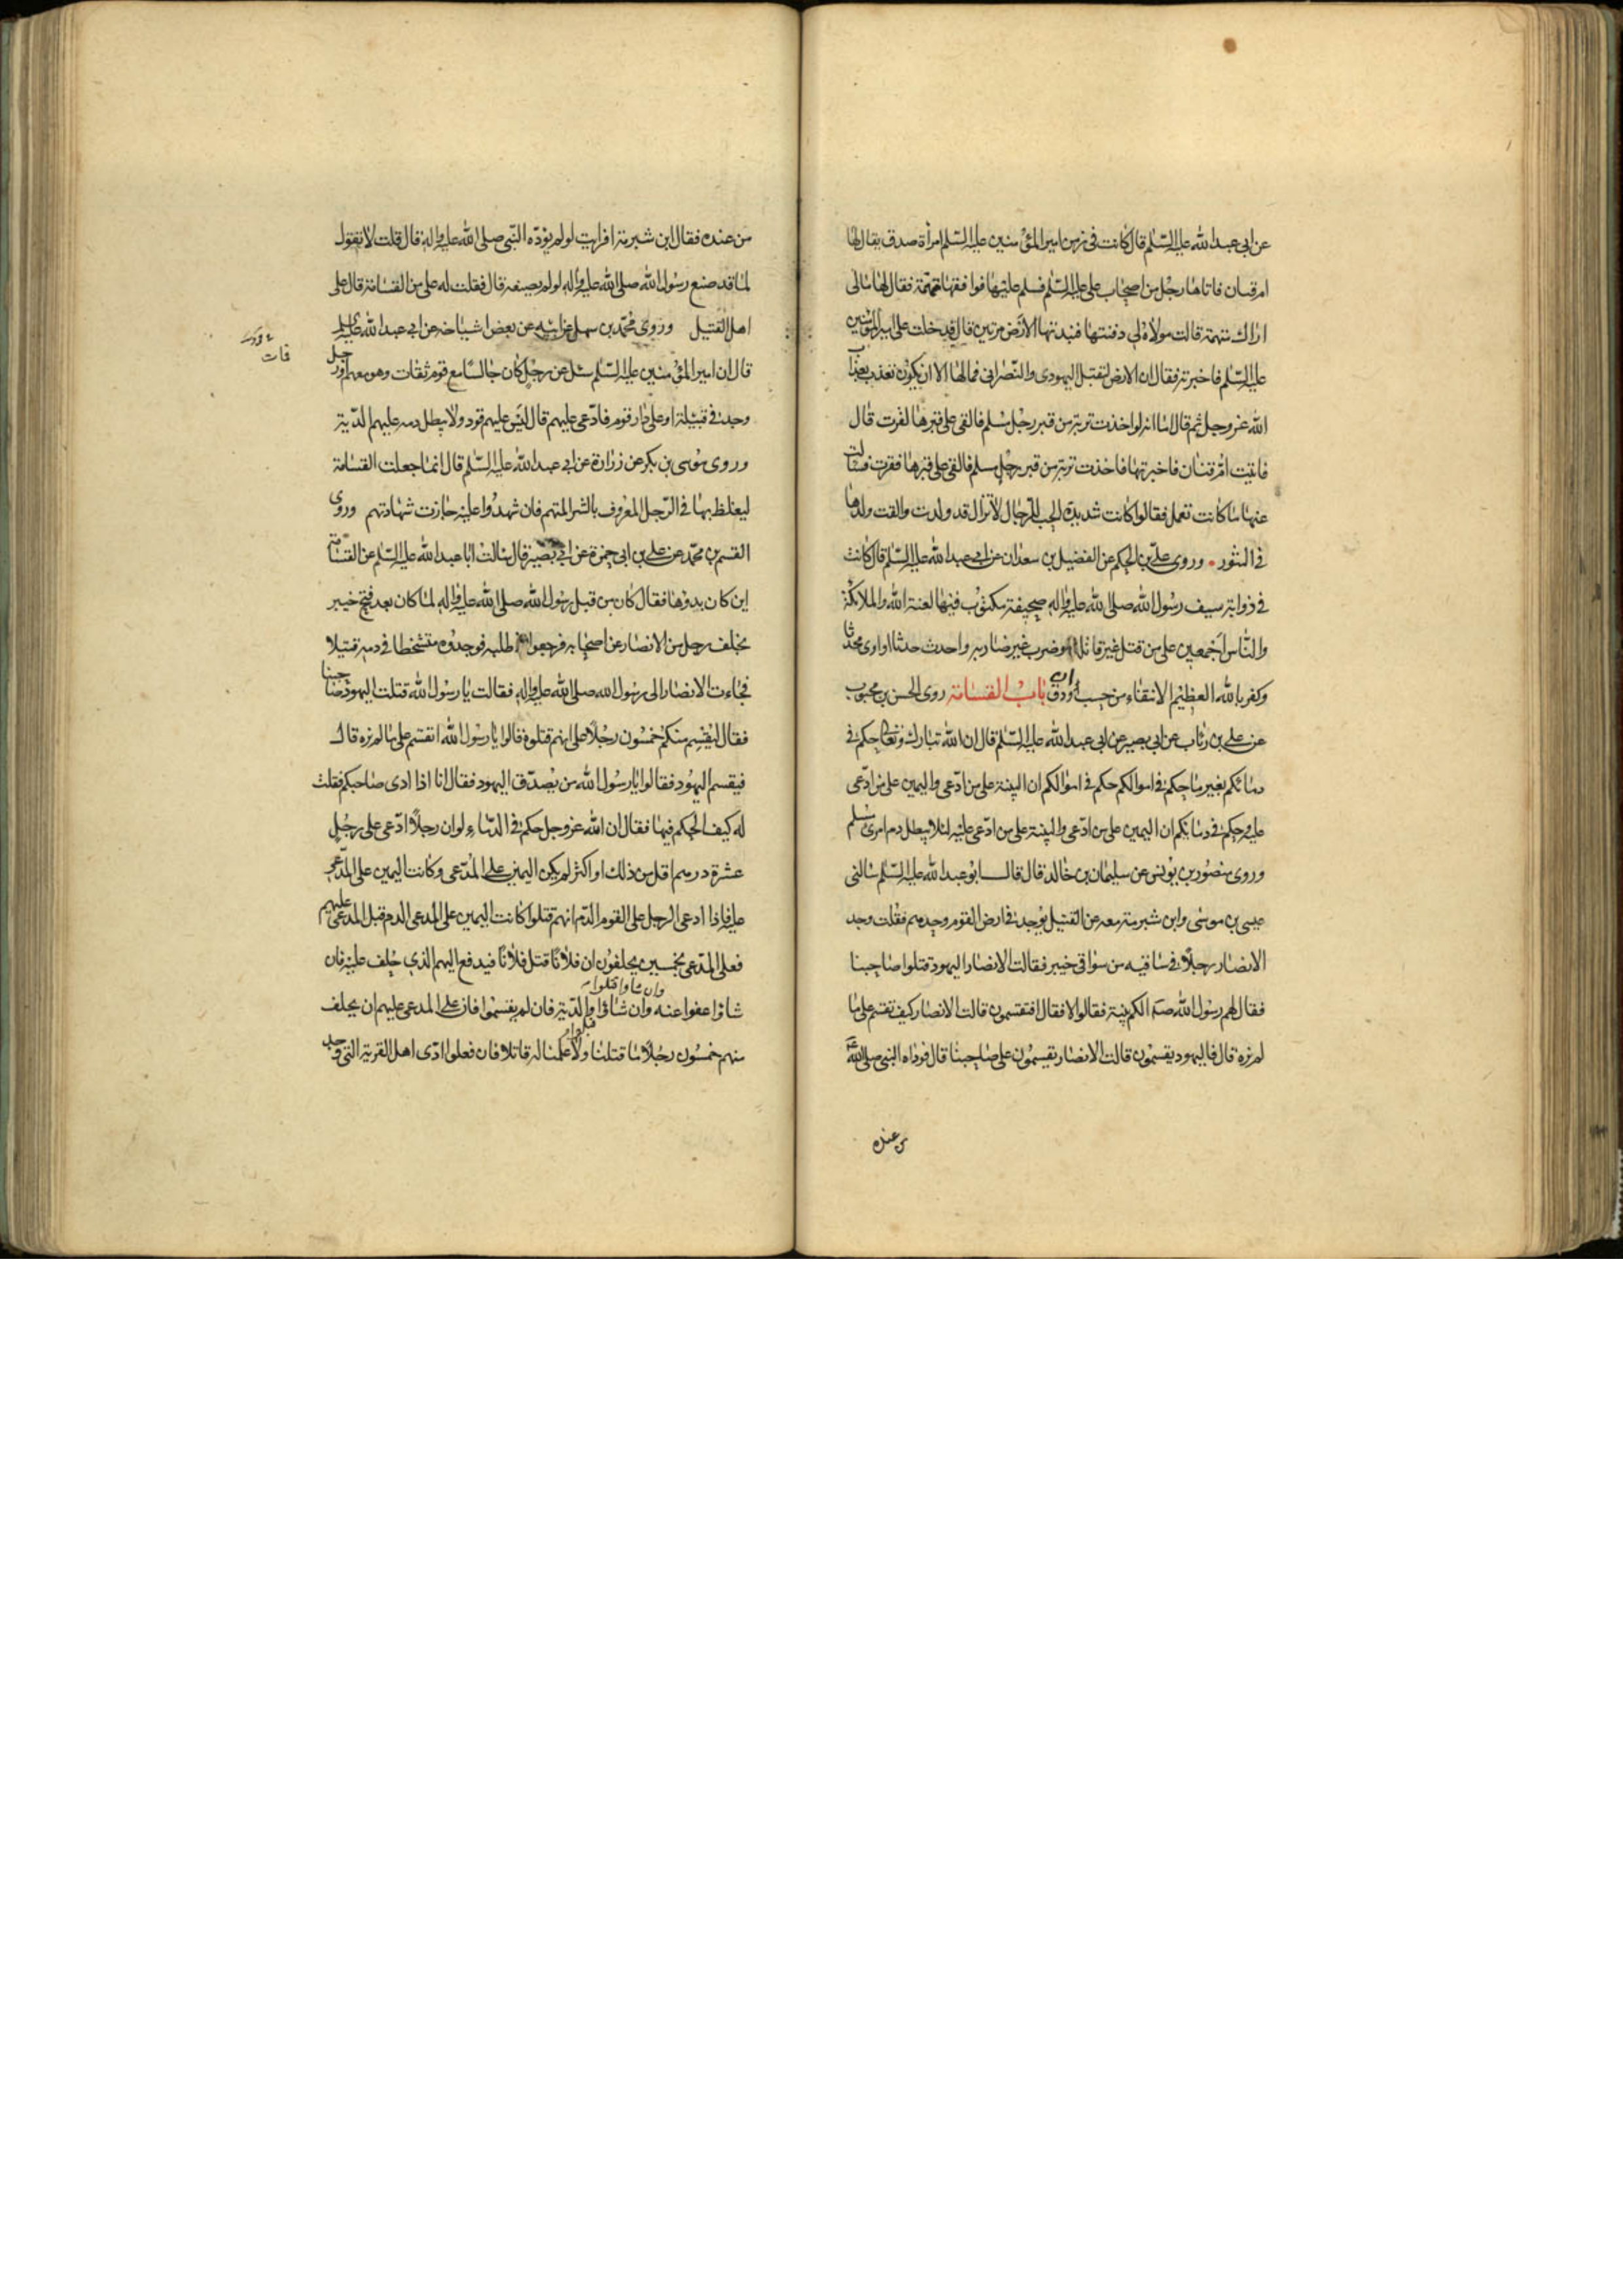 عن ابى عبد الله عليه السّلم قال كانت فى زمن امير المؤمنين عليه السّلم امرأة صدق يقال لها
ام قيان فاتاها رجل من اصحاب على عليه السّلم فسلم عليها فوافقها مهتمّة فقال لها مالى
اراك مهتمة قالت مولاة لى دفنتها فنبذتها الارض مرتين قال فدخلت على امير المؤمنين
عليه السّلم فاخبرته فقال ان الارض لتقبل اليهودى والنّصرانى فمالها الا ان يكون تعذب بعذاب
الله عز وجل ثم قال اما انه لو اخذت تربة من قبر رجل مسلم فالقى على قبرها لقرت قال
فاتيت ام قيان فاخبرتها فاخذت تربة من قبر رجل مسلم فالقى على قبرها فقرت فسالت
عنها ما كانت تعمل فقالوا كانت شديدة الحب للرجال لا تزال قد ولدت والقت ولدها
فى التنور وروى على بن الحكم عن الفضيل بن سعدان عن ابى عبد الله عليه السّلم قال كانت
فى ذوابة سيف رسول الله صلى الله عليه واله صحيفة مكتوب فيها لعنة الله والملائكة
والنّاس اجمعين على من قتل غير قاتله او ضرب غير ضاربه واحدث حدثا او اوى محدثا
وكفر بالله العظيم الانتفاء من حسب او ان دق باب القسامة روى الحسن بن محبوب
عن على بن رئاب عن ابى بصير عن ابى عبد الله عليه السّلم قال ان الله تبارك وتعالى حكم فى
دمائكم بغير ما حكم فى اموالكم حكم فى اموالكم ان البينة على من ادّعى واليمين على من ادّعى
عليه وحكم فى دمائكم ان اليمين على من ادعى والبينة على من ادعى عليه لئلا يبطل دم امرئ مسلم
وروى منصور بن يونس عن سليمان بن خالد قال قال ابو عبد الله عليه السّلم سالنى
عيسى بن موسى وابن شبرمة معه عن القتيل يوجد فى ارض القوم وحدهم فقلت وجد
الانصار رجلا فى ساقيه من سواقى خيبر فقالت الانصار اليهود قتلوا صاحبنا
فقال لهم رسول الله صلم الكم بينة فقالوا لا فقال افتقسمون قالت الانصار كيف نقسم على ما
لم نره قال فاليهود يقسمون قالت الانصار يقسمون على صاحبنا قال فوداه النبى صلى الله عليه
من عنده
من عنده فقال ابن شبرمة افرايت لو لم يؤدّه النّبى صلى الله عليه واله قال قلت لا نقول
لما قد صنع رسول الله صلى الله عليه واله لو لم يصنعه قال فقلت له على من القسامة قال على
اهل القتيل وروى محمّد بن سهل عن ابيه عن بعض اشياخه عن ابى عبد الله عليه السلم
قال ان امير المؤمنين عليه السّلم سئل عن رجل كان جالسا مع قوم ثقات وهو معهم او رجل
وجد فى قبيلة او على دار قوم فادّعى عليهم قال ليس عليهم قود ولا يبطل دمه عليهم الدّية
وروى موسى بن بكر عن زرارة عن ابى عبد الله عليه السّلم قال انما جعلت القسامة
ليغلظ بها فى الرّجل المعروف بالشر المتهم فان شهدوا عليه جازت شهادتهم وروى
القسم بن محمّد عن على بن ابى حمزة عن ابى بصير قال سالت ابا عبد الله عليه السّلم عن القسامة
اين كان بدوها فقال كان من قبل رسول الله صلى الله عليه واله لما كان بعد فتح خيبر
تخلف رجل من الانصار عن اصحابه فرجعوا فى طلبه فوجدوه متشخطا فى دمه قتيلا
فجاءت الانصار الى رسول الله صلى الله عليه واله فقالت يا رسول الله قتلت اليهود صاحبنا
فقال ليقسم منكم خمسون رجلا على انهم قتلوه قالوا يا رسول الله انقسم على ما لم نره قال
فيقسم اليهود فقالوا يا رسول الله من يصدّق اليهود فقال انا اذا ادى صاحبكم فقلت
له كيف الحكم فيها فقال ان الله عز وجل حكم فى الدّماء لو ان رجلا ادّعى على رجل
عشرة درهم اقل من ذلك او اكثر لم يكن اليمين على المدّعى وكانت اليمين على المدّعى
عليه فاذا ادعى الرجل على القوم الدّم انهم قتلوا كانت اليمين على المدعى الدم قبل المدعى عليهم
فعلى المدّعى بخمسين يحلفون ان فلانا قتل فلانا فيدفع اليهم الذى حلف عليه فان
شاؤا عفوا عنه وان شاوا قتلوا وان شاؤا قبلوا الدّية فان لم يقسموا فان على المدعى عليهم ان يحلف
منهم خمسون رجلا ما قتلنا ولا علمنا له قاتلا فان فعلوا ادّى اهل القرية التى وجد